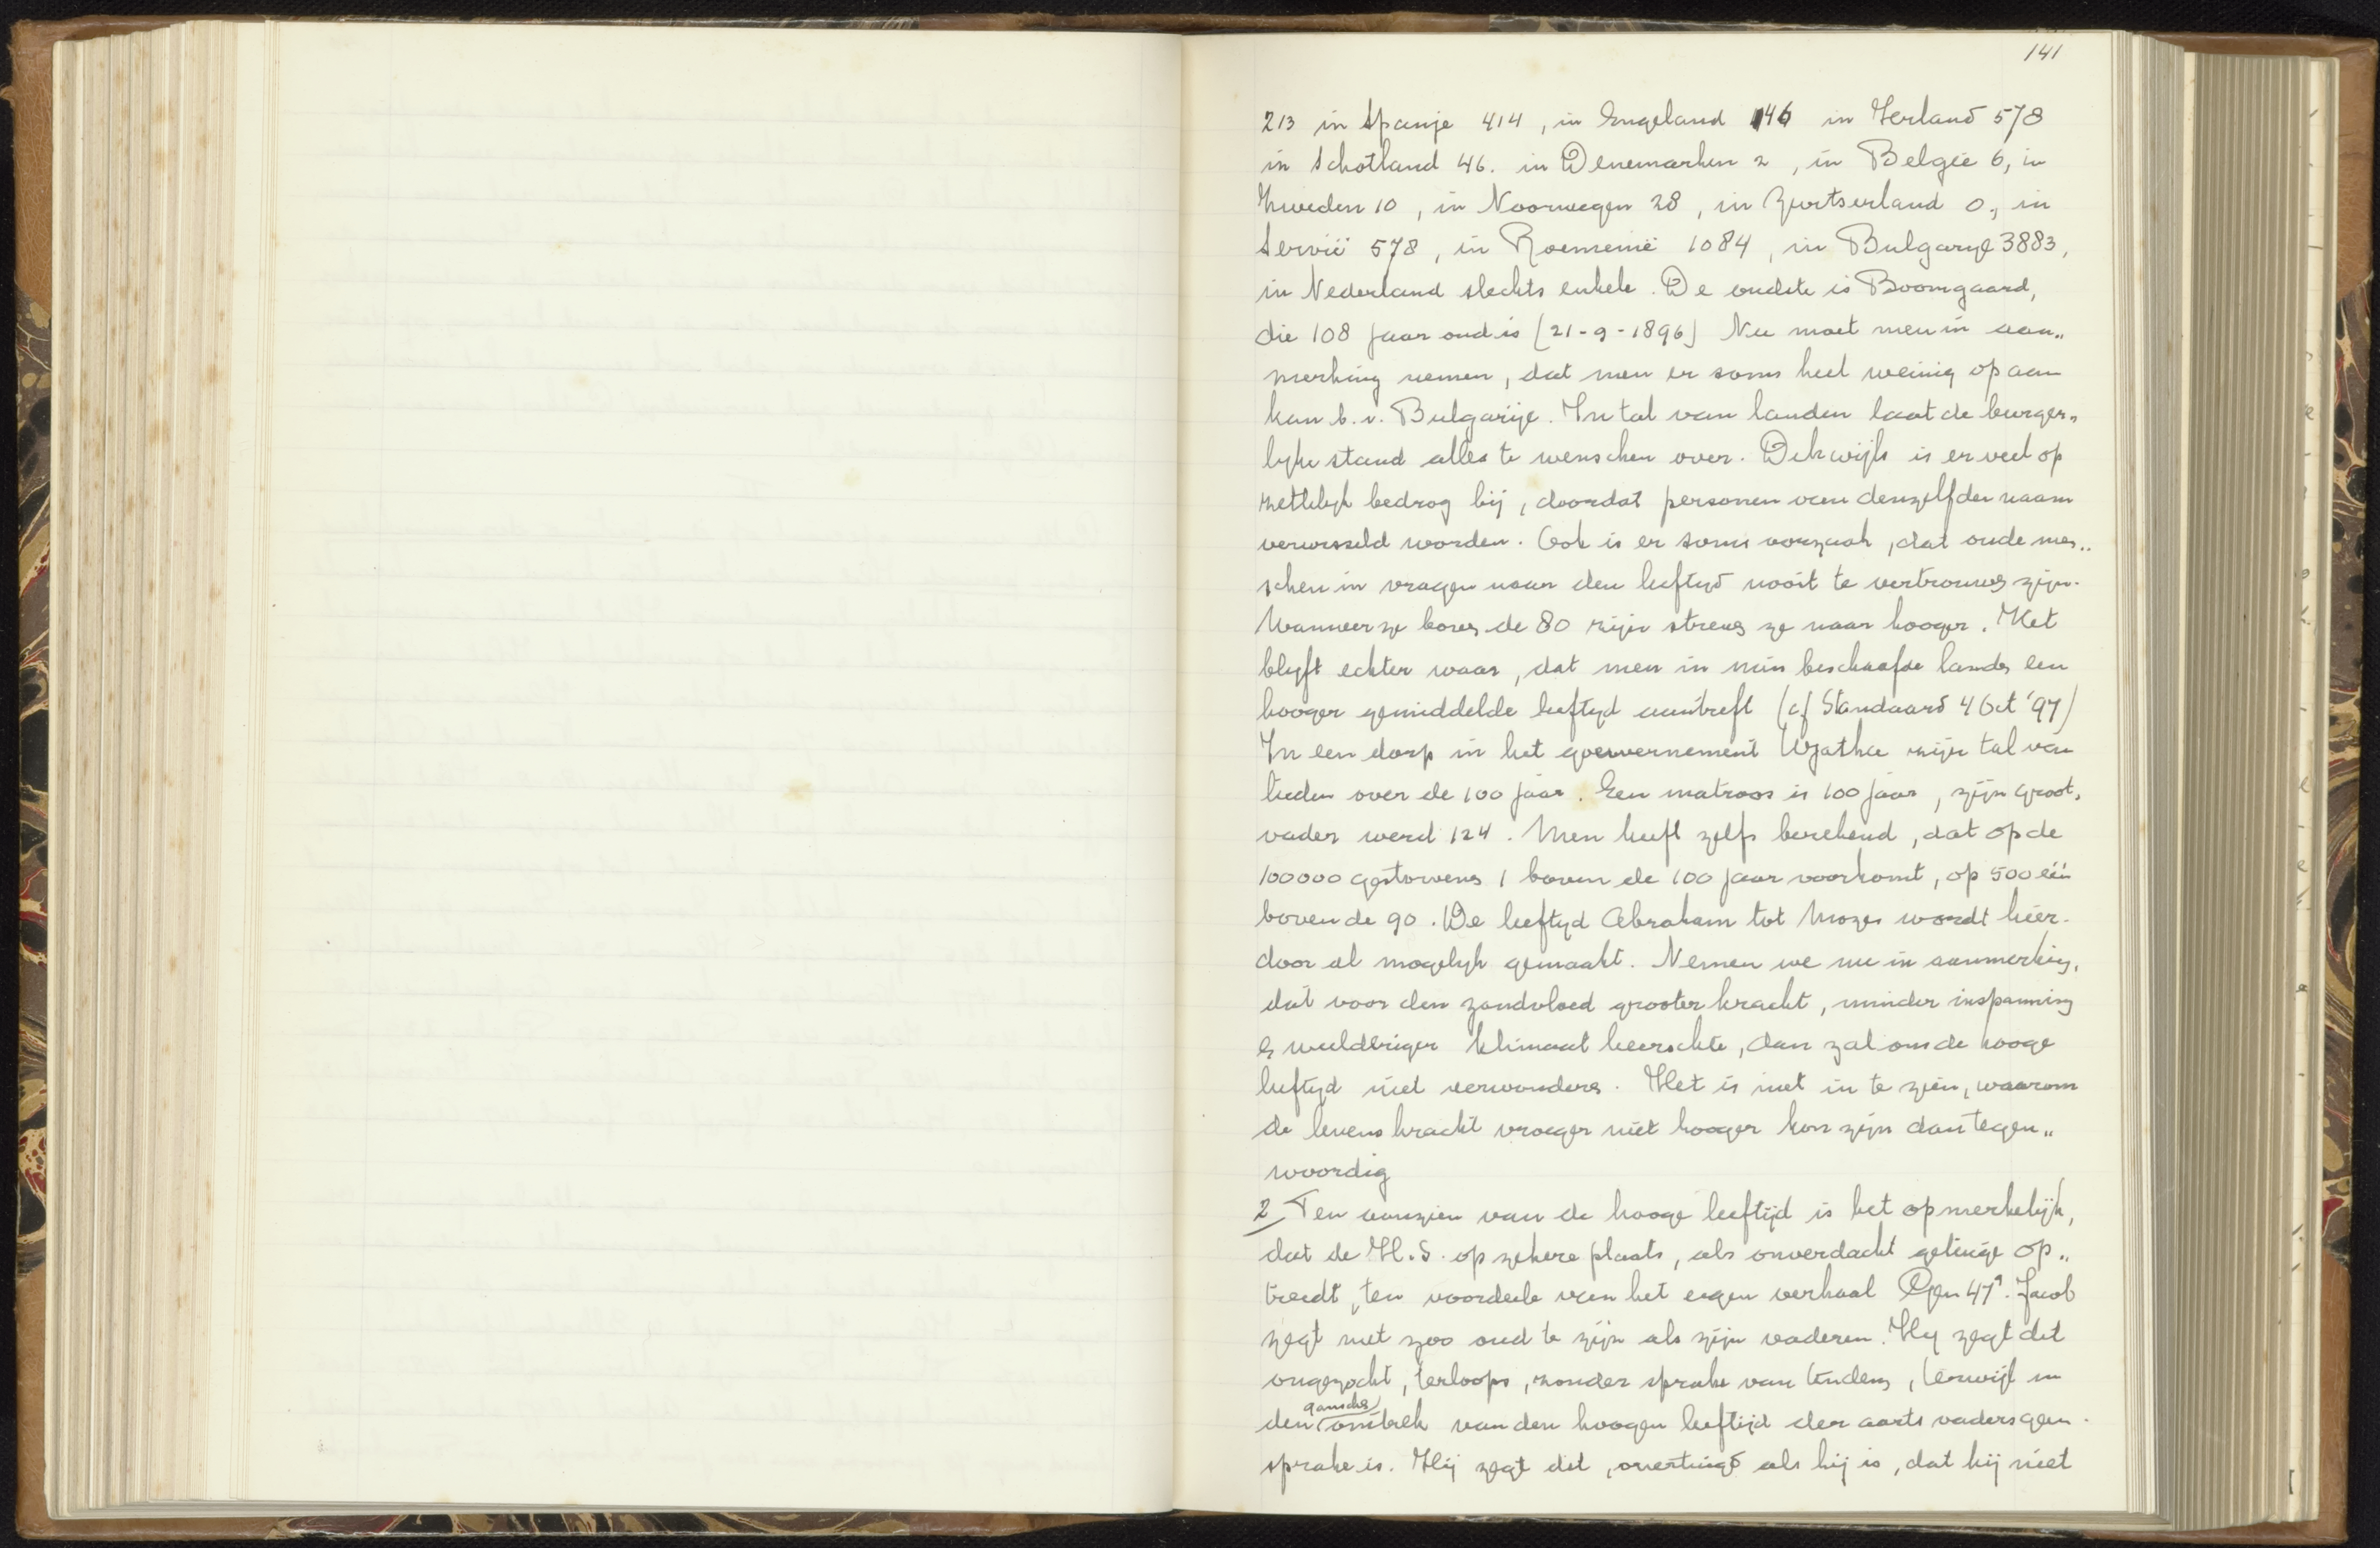 141
213 in Spanje 414, in Engeland 146 in Ierland 578
in Schotland 46. in Denemarken 2, in België 6, in
Zweden 10, in Noorwegen 28, in Zwitserland 0, in
Servië 578, in Roemenië 1084, in Bulgarije 3883,
in Nederland slechts enkele. De oudste is Boomgaard,
die 108 jaar oud is [21-9-1896] Nu moet men in aan„
merking nemen, dat men er soms heel weinig op aan
kan b.v. Bulgarije. In tal van landen laat de burger„
lijke stand alles te wenschen over. Dikwijls is er veel op
zettelijk bedrog bij, doordat personen van denzelfden naam
verwisseld worden. Ook is er soms oorzaak, dat oude men„
schen in vragen naar den leeftijd nooit te vertrouwen zijn.
Wanneer ze boven de 80 zijn streven ze naar hooger. Het
blijft echter waar, dat men in min beschaafde landen een
hooger gemiddelde leeftijd aantreft (cf Standaard 4 Oct '97)
In een dorp in het gouvernement Wjatka zijn tal van
lieden over de 100 jaar. Een matroos is 100 jaar, zijn groot„
vader werd 124. Men heeft zelfs berekend, dat op de
100000 gestorvenen 1 boven de 100 jaar voorkomt, op 500 één
boven de 90. De leeftijd Abraham tot Mozes wordt hier-
door al mogelijk gemaakt. Nemen we nu in aanmerking,
dat voor den zondvloed grooter kracht, minder inspanning
en weelderiger klimaat heerschte, dan zal ons de hooge
leeftijd niet verwonderen. Het is niet in te zien, waarom
de levenskracht vroeger niet hooger kon zijn dan tegen„
woordig
2/ Ten aanzien van de hooge leeftijd is het opmerkelijk,
dat de H.S. op zekere plaats, als onverdacht getuige op„
treedt, ten voordeele van het eigen verhaal Gen 47⁹. Jacob
zegt niet zoo oud te zijn als zijn vaderen. Hij zegt dit
ongezocht, terloops, zonder sprake van tendenz, terwijl in
den ganschen omtrek van den hoogen leeftijd der aartsvaders geen
sprake is. Hij zegt dit, overtuigd als hij is, dat hij niet